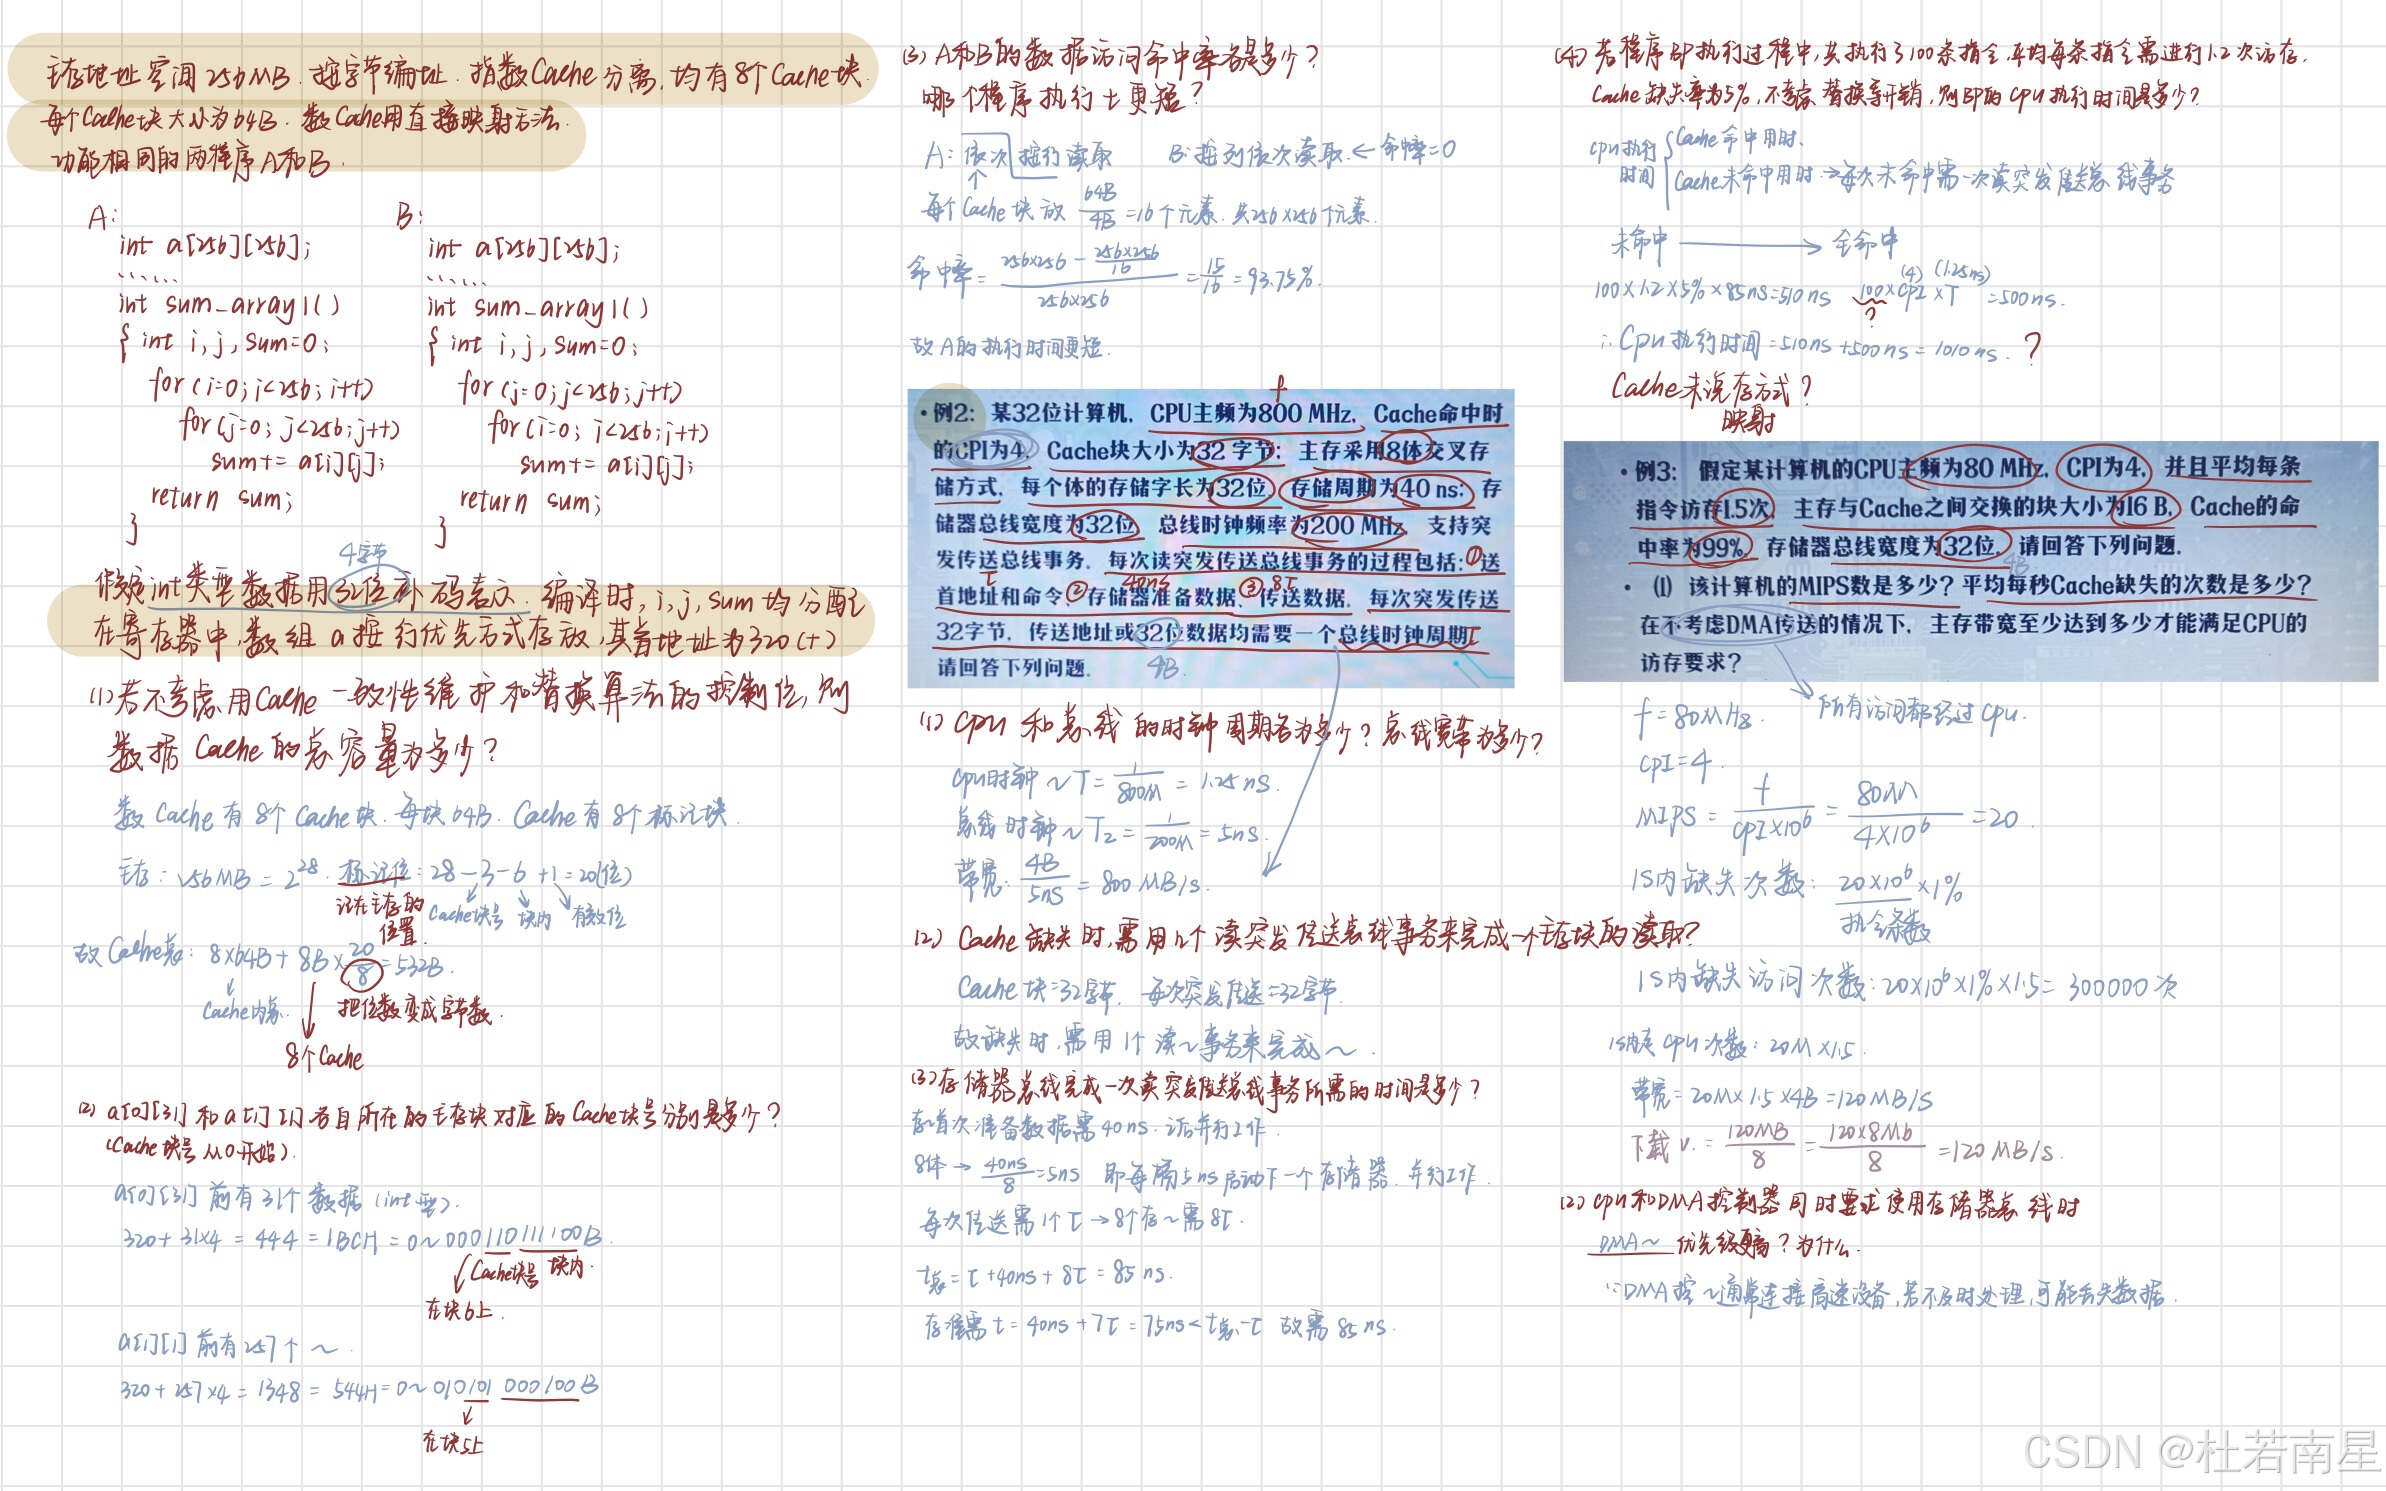 主存地址空间256MB.按字节编址.指数Cache分离,均有8个Cache块.
每个Cache块大小为64B.数Cache用直接映射方法.
功能相同的两程序A和B.
A:
int a[256][256];
......
int sum_array1()
{ int i,j,sum=0;
for(i=0;i<256;i++)
for(j=0;j<256;j++)
sum+=a[i][j];
return sum;
}
B:
int a[256][256];
......
int sum_array1()
{ int i,j,sum=0;
for(j=0;j<256;j++)
for(i=0;i<256;i++)
sum+=a[i][j];
return sum;
}
4字节
假定int类型数据用32位补码表示.编译时,i,j,sum均分配
在寄存器中,数组a按行优先方式存放,其首地址为320(十)
(1)若不考虑用Cache一致性维护和替换算法的控制位,则
数据Cache的总容量为多少?
数Cache有8个Cache块.每块64B.Cache有8个标记块.
主存:256MB=2^28.标记位:28-3-6+1=20(位)
记在主存的位置.
Cache块号 块内 有效位
故Cache总:8×64B+8B×20/8=532B.
Cache内容.
把位数变成字节数.
8个Cache
(2) a[0][31]和a[1][1]各自所在的主存块对应的Cache块号分别是多少?
(Cache块号从0开始).
a[0][31]前有31个数据(int型).
320+31×4=444=1BCH=0~000110111100B.
Cache块号 块内.
在块6上.
a[1][1]前有257个~.
320+257×4=1348=544H=0~010101 000100B
在块5上
(3) A和B的数据访问命中率各是多少?
哪个程序执行t更短?
A:依次按行读取 B:按列依次读取.←命中率=0
每个Cache块放64B/4B=16个元素.共256×256个元素.
命中率=(256×256-256×256/16)/256×256=15/16=93.75%.
故A的执行时间更短.
f
·例2:某32位计算机,CPU主频为800 MHz,Cache命中时
的CPI为4,Cache块大小为32字节;主存采用8体交叉存
储方式,每个体的存储字长为32位,存储周期为40 ns;存
储器总线宽度为32位,总线时钟频率为200 MHz,支持突
发传送总线事务。每次读突发传送总线事务的过程包括:①送
τ ② 40ns ③ 8τ
首地址和命令、存储器准备数据、传送数据。每次突发传送
32字节,传送地址或32位数据均需要一个总线时钟周期τ
请回答下列问题.
4B
(1) CPU和总线的时钟周期各为多少?总线宽带为多少?
CPU时钟~T=1/800M=1.25ns.
总线时钟~T2=1/200M=5ns.
带宽:4B/5ns=800MB/s.
(2) Cache缺失时,需用几个读突发传送总线事务来完成一个主存块的读取?
Cache块=32字节,每次突发传送=32字节.
故缺失时,需用1个读~事务来完成~.
(3)存储器总线完成一次读突发传送总线事务所需的时间是多少?
存首次准备数据需40ns.之后并行工作.
8体→40ns/8=5ns 即每隔5ns启动下一个存储器.并行工作.
每次传送需1个τ→8个存~需8τ.
t总=τ+40ns+8τ=85ns.
存准需t=40ns+7τ=75ns<t总-τ 故需85ns.
(4)若程序BP执行过程中,共执行了100条指令,平均每条指令需进行1.2次访存.
Cache缺失率为5%,不考虑替换等开销,则BP的CPU执行时间是多少?
CPU执行时间
Cache命中用时.
Cache未命中用时→每次未命中需一次读突发传送总线事务
未命中 → 全命中
(4) (1.25ns)
100×1.2×5%×85ns=510ns 100×CPI×T=500ns.
?
∴CPU执行时间=510ns+500ns=1010ns. ?
Cache未说存方式?
映射
·例3:假定某计算机的CPU主频为80 MHz,CPI为4,并且平均每条
指令访存1.5次,主存与Cache之间交换的块大小为16 B,Cache的命
中率为99%,存储器总线宽度为32位。请回答下列问题.
4B
·(1)该计算机的MIPS数是多少?平均每秒Cache缺失的次数是多少?
在不考虑DMA传送的情况下,主存带宽至少达到多少才能满足CPU的
访存要求?
f=80MHz. 所有访问都经过CPU.
CPI=4.
MIPS=f/CPI×10^6=80M/4×10^6=20.
1S内缺失次数:20×10^6×1%
执令条数
1S内缺失访问次数:20×10^6×1%×1.5=300000次
CPU次数:20M×1.5.
带宽=20M×1.5×4B=120MB/S
下载v.=120MB/8=120×8Mb/8=120MB/s.
(2) CPU和DMA控制器同时要求使用存储器总线时
DMA~优先级更高?为什么.
∵DMA控~通常连接高速设备,若不及时处理,可能丢失数据.
CSDN @杜若南星